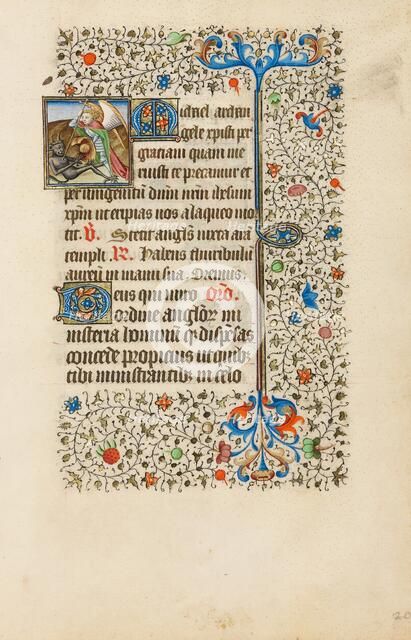 Michael archan
gele xpisti per
gratiam quam me
ruisti te precamur et
per unigenitum dnm nrm ihesum
xpm ut eripias nos a laqueo mor
tis. V. Stetit angls iuxta ara
templi. R. Habens thuribulum
aureum in manu sua. Oremus.
Deus qui miro oro.
ordine anglor mi
nisteria hominum q dispesas
concede propicius ut quibz
tibi ministrantibz in celo